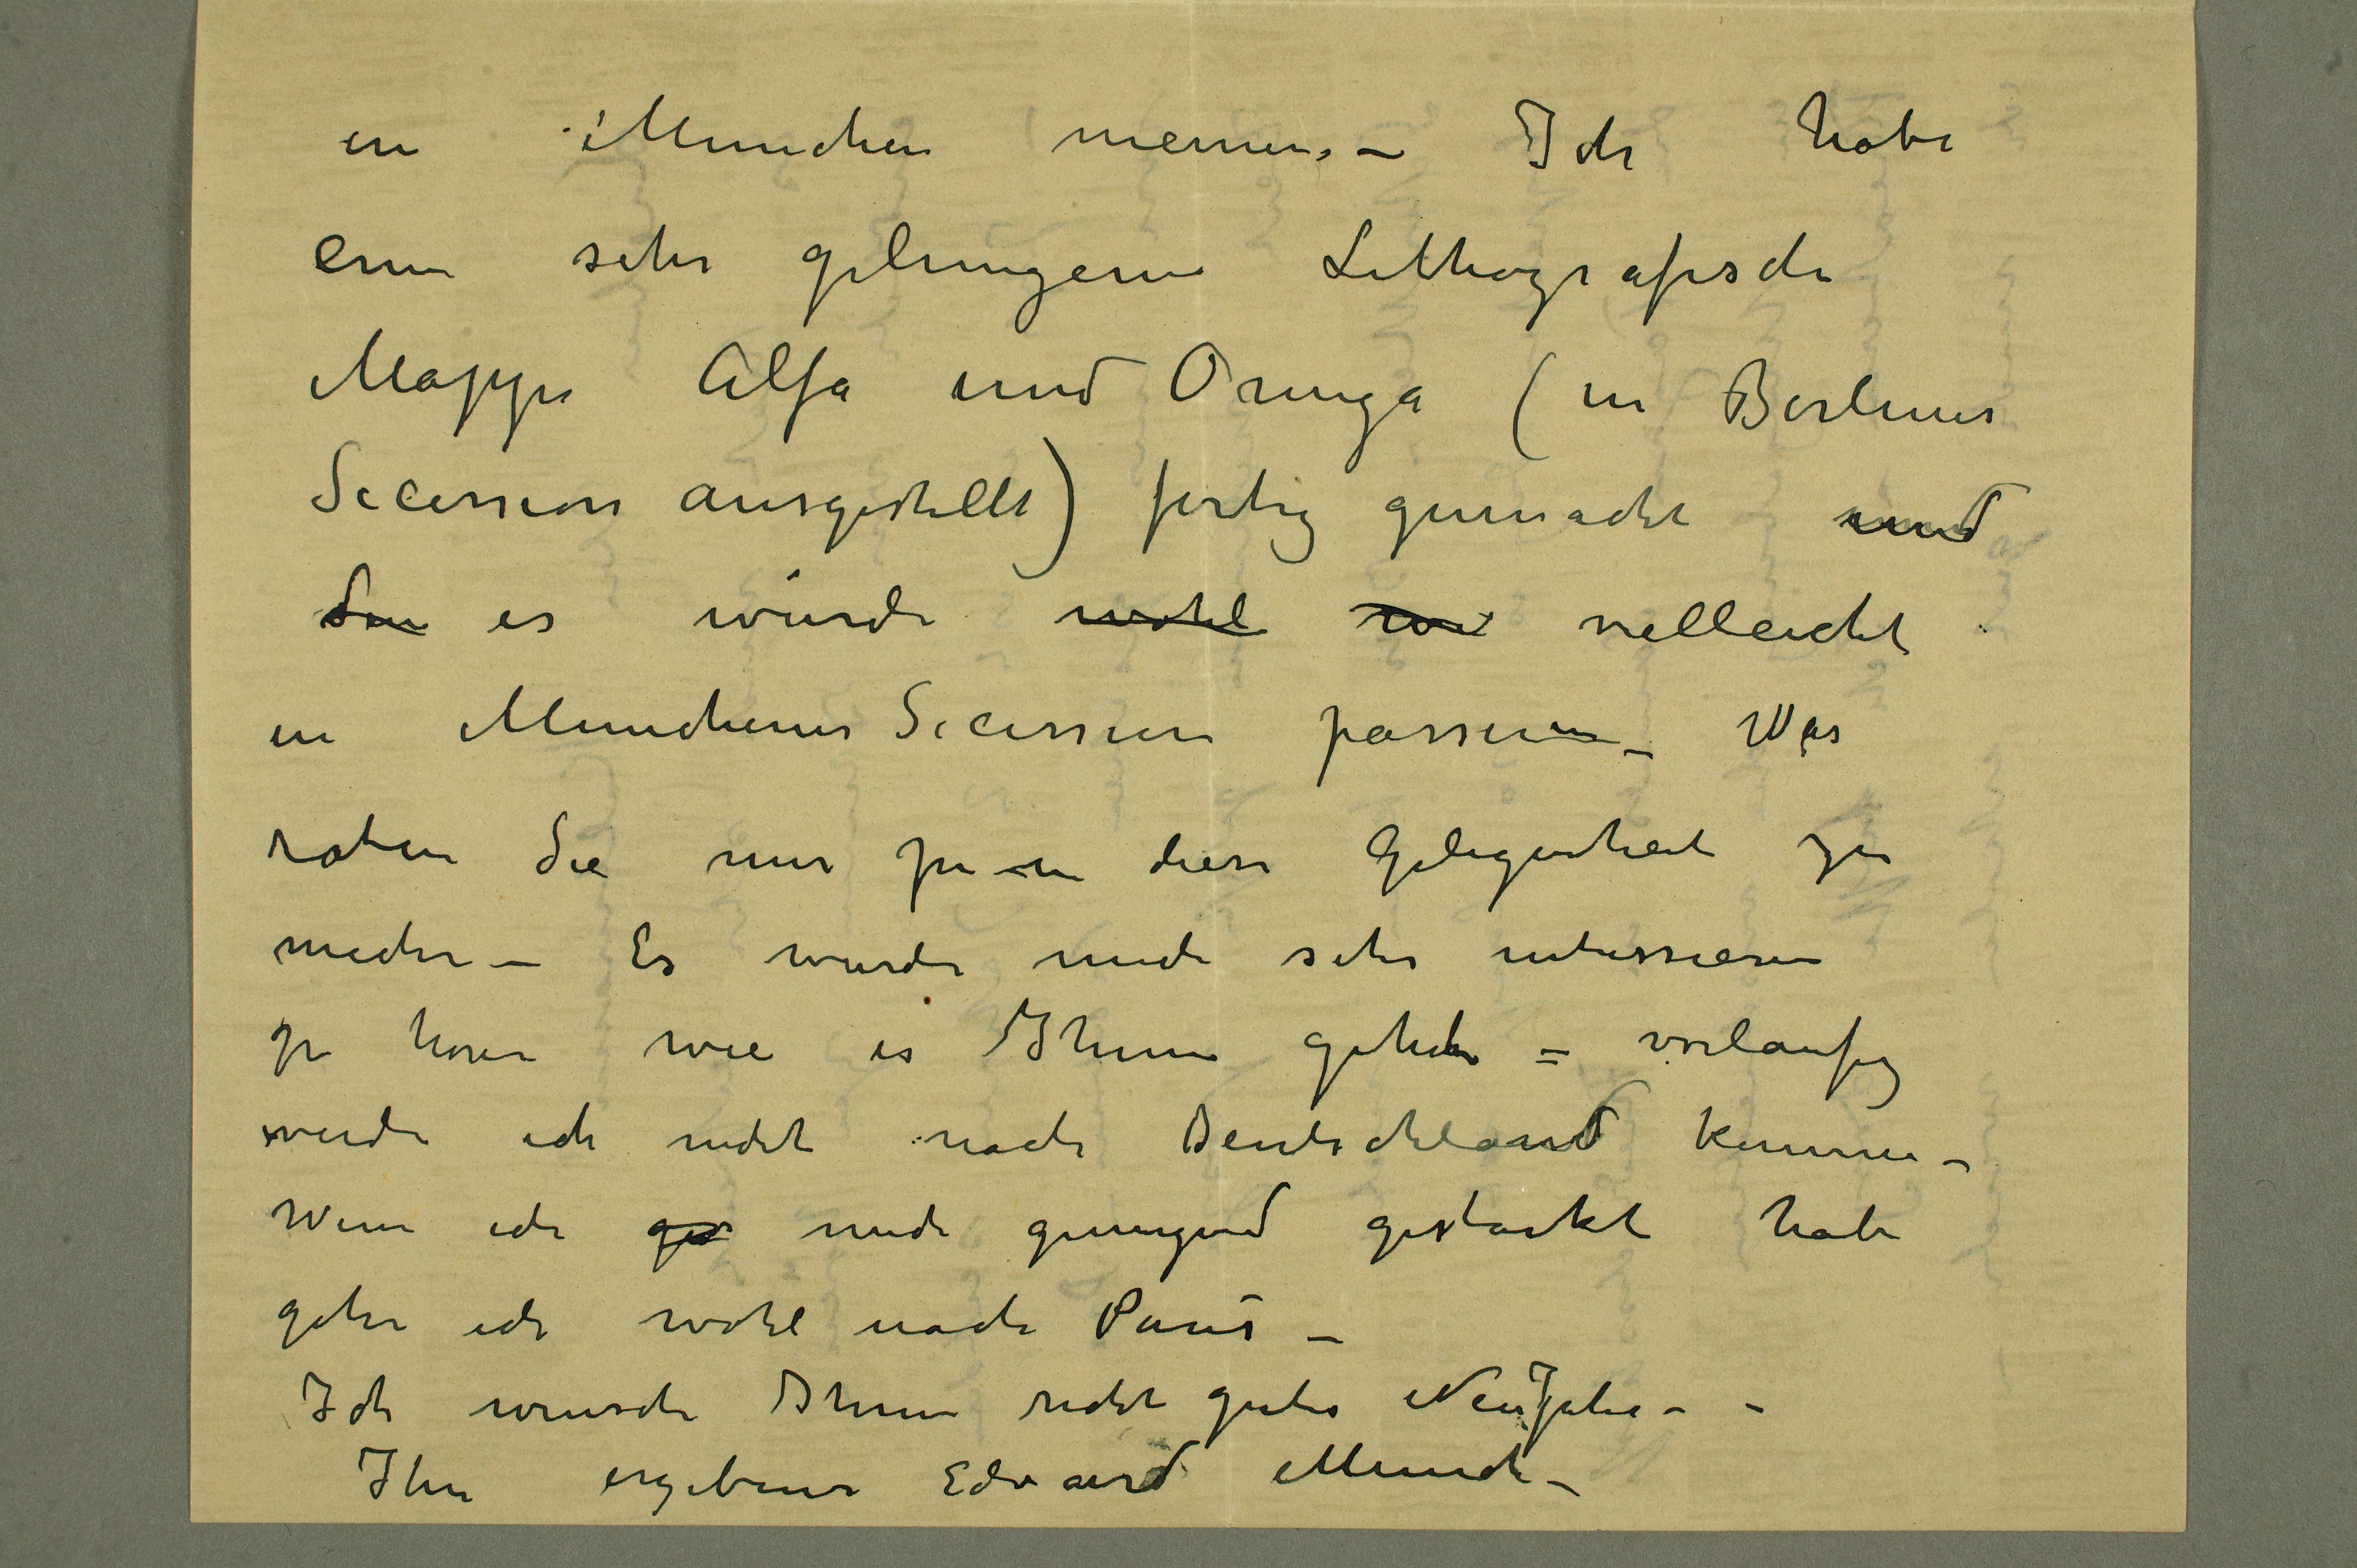 in Munchen meinen. – Ich habe
eine sehr gelungene Lithografische
Mappe Alfa und Omega (in Berliner
Secession ausgestellt) fertig gemacht und
es würde wohl vielleicht
in Munchener Secession passen – Was
raten Sie mir zu in diese Gelegenheit zu
machen – Es wurde mich sehr interssieren
zu horen wie es Ihnen geht = vorlaufig
werde ich nicht nach Deutschland kommen –
Wenn ich mich genugend gestarkt habe
gehe ich wohl nach Paris –
Ich wunsche Ihnen recht gutes NeuJahr – –
Ihr ergebener Edvard Munch –